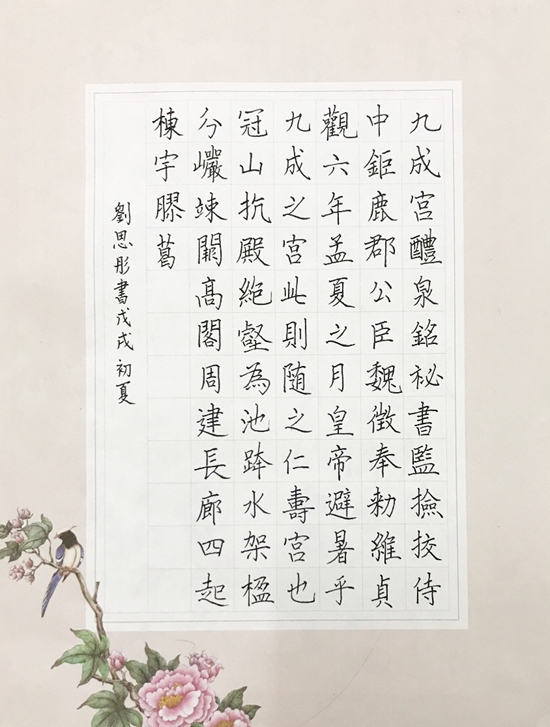 九成宮醴泉銘祕書監撿挍侍
中鉅鹿郡公臣魏徵奉勑維貞
觀六年孟夏之月皇帝避暑乎
九成之宮此則隨之仁壽宮也
冠山抗殿絕壑為池跨水架楹
分巗竦闕高閣周建長廊四起
棟宇膠葛
劉思彤書戊戌初夏